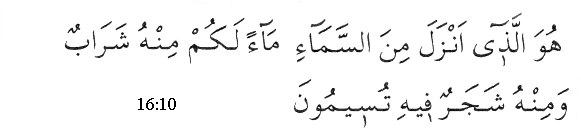 هُوَ الَّذ۪ٓي اَنْزَلَ مِنَ السَّمَٓاءِ مَٓاءً لَكُمْ مِنْهُ شَرَابٌ
وَمِنْهُ شَجَرٌ ف۪يهِ تُس۪يمُونَ 16:10